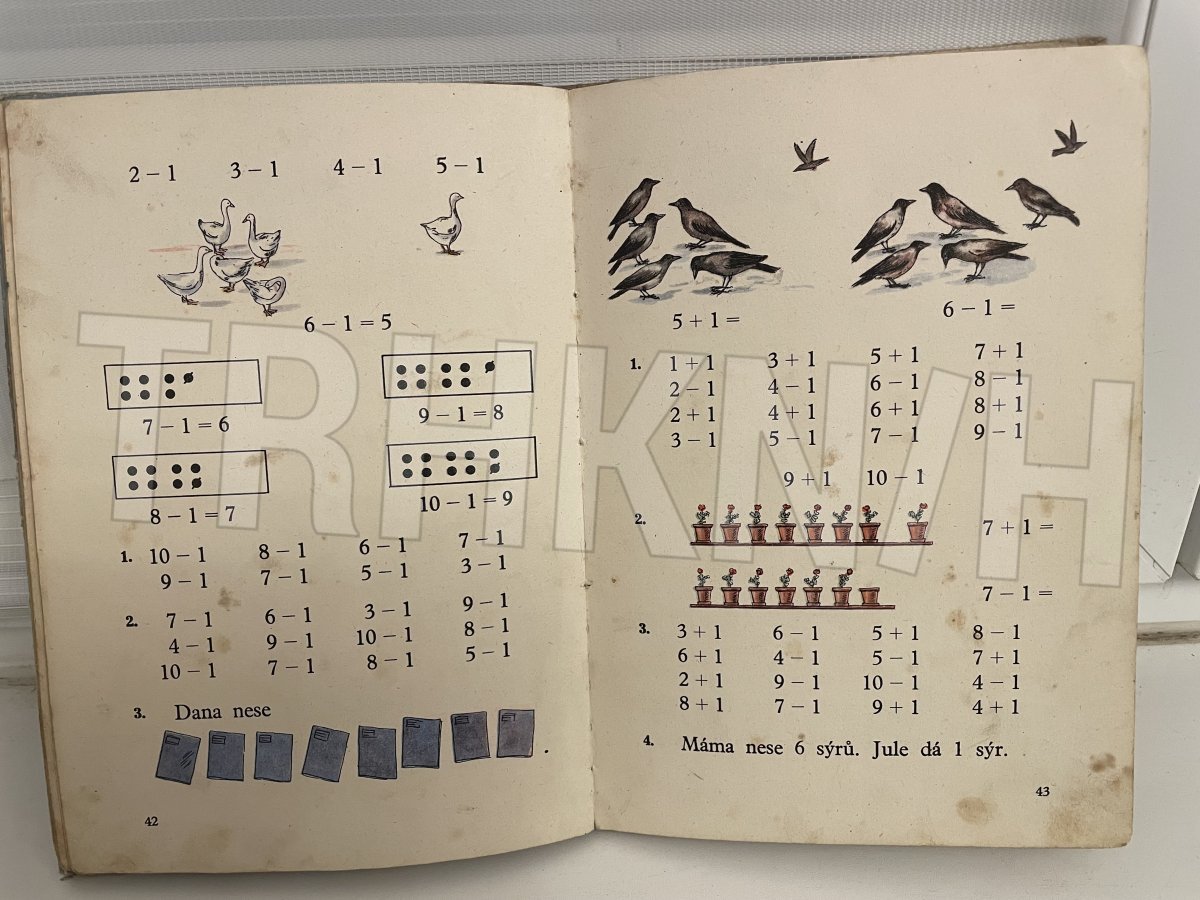 2 – 1 3 – 1 4 – 1 5 – 1
6 – 1 = 5
7 – 1 = 6 9 – 1 = 8
8 – 1 = 7 10 – 1 = 9
1. 10 – 1 8 – 1 6 – 1 7 – 1
9 – 1 7 – 1 5 – 1 3 – 1
2. 7 – 1 6 – 1 3 – 1 9 – 1
4 – 1 9 – 1 10 – 1 8 – 1
10 – 1 7 – 1 8 – 1 5 – 1
3. Dana nese
.
42
5 + 1 = 6 – 1 =
1. 1 + 1 3 + 1 5 + 1 7 + 1
2 – 1 4 – 1 6 – 1 8 – 1
2 + 1 4 + 1 6 + 1 8 + 1
3 – 1 5 – 1 7 – 1 9 – 1
9 + 1 10 – 1
2. 7 + 1 =
7 – 1 =
3. 3 + 1 6 – 1 5 + 1 8 – 1
6 + 1 4 – 1 5 – 1 7 + 1
2 + 1 9 – 1 10 – 1 4 – 1
8 + 1 7 – 1 9 + 1 4 + 1
4. Máma nese 6 sýrů. Jule dá 1 sýr.
43